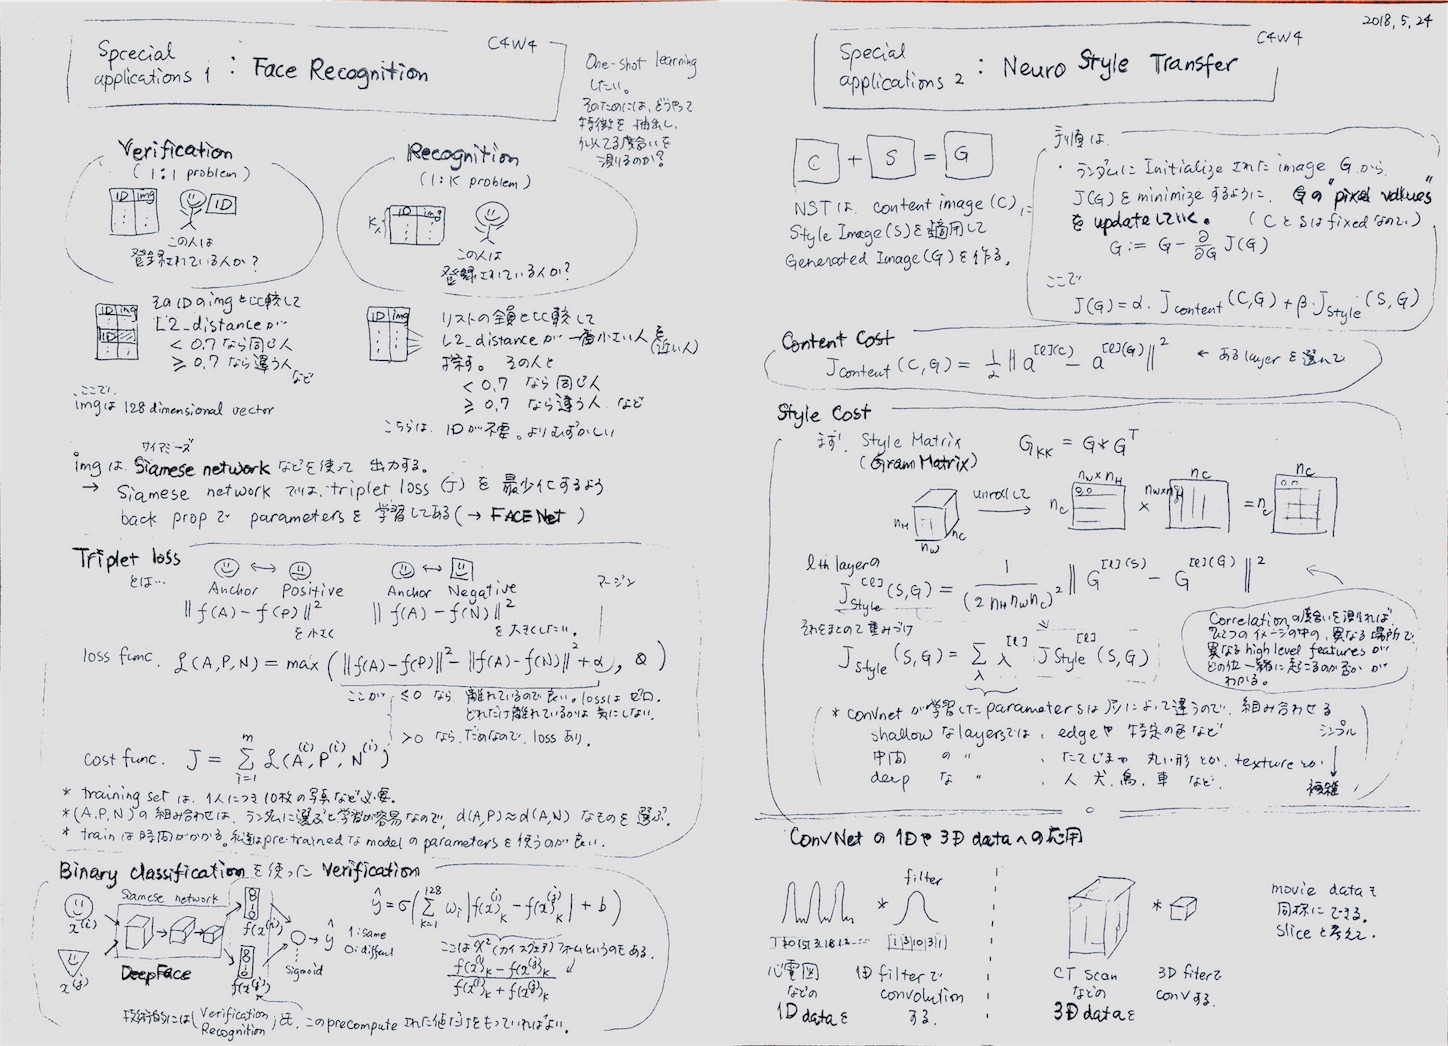 2018, 5, 24
Spcecial
applications 1 : Face Recognition
C4W4
One-shot learning
したい。
そのためには、どうやって
特徴を抽出し、
似てる度合いを
測るのか?
Verification
(1:1 problem)
ID img
ID
この人は
登録されている人か?
Recognition
(1:K problem)
K人
ID img
この人は
登録されている人か?
ID img
ID
そのIDのimgと比較して
L2_distanceが
< 0.7 なら同じ人
≥ 0.7 なら違う人
など
ID img
リストの全員と比較して
L2_distance が 一番小さい人を
(近い人)
探す。その人と
< 0.7 なら 同じ人
≥ 0.7 なら違う人 など
こちらは、IDが不要。よりむずかしい
ここで、
imgは 128 dimensional vector
サイアミーズ
imgは、Siamese network などを使って 出力する。
→ Siamese network では、triplet loss (J) を 最少化するよう
back prop で parameters を 学習してある (→ FACENet )
Triplet loss
とは…
Anchor Positive
Anchor Negative
マージン
‖ f(A) − f(P) ‖²
を小さく
‖ f(A) − f(N) ‖²
を大きくしたい。
loss func. ℒ(A,P,N) = max ( ‖f(A)−f(P)‖² − ‖f(A)−f(N)‖² + α, 0 )
ここが ≤0 なら 離れているので良い。lossは ゼロ。
どれだけ離れているかは 気にしない。
>0 なら、だめなので、loss あり。
cost func. J = Σ_{i=1}^{m} ℒ(A^{(i)}, P^{(i)}, N^{(i)})
* training set は、1人につき10枚の写真など必要。
* (A,P,N)の組み合わせは、ランダムに選ぶと学習が容易なので、d(A,P)≈d(A,N) なものを 選ぶ。
* train は時間がかかる。pre-trained な model の parameters を使うのが良い。
Binary classification を使った Verification
Siamese network
x^{(i)}
f(x^{(i)})
DeepFace
x^{(j)}
f(x^{(j)})
Sigmoid
ŷ
1: same
0: diffent
ŷ = σ( Σ_{k=1}^{128} w_i | f(x^{(i)})_k − f(x^{(j)})_k | + b )
ここは χ² (カイスクェア) フォームというのもある。
f(x^{(i)})_k − f(x^{(j)})_k
f(x^{(i)})_k + f(x^{(j)})_k
技術的には (Verification
Recognition) も、この precompute された値だけをもっていればよい。
Special
applications 2 : Neuro Style Transfer
C4W4
C + S = G
NST は、content image (C) に
Style Image (S) を適用して
Generated Image (G) を作る。
手順は、
・ランダムに Initialize された image G から、
J(G) を minimize するように、Gの "pixel values"
を update していく。 (CとSは fixed なので。)
G := G − ∂/∂G J(G)
ここで
J(G) = α・J_content (C,G) + β・J_Style (S,G)
Content Cost
J_content (C,G) = 1/2 ‖ a^{[l](C)} − a^{[l](G)} ‖² ← ある layer を選んで
Style Cost
まず! Style Matrix
(Gram Matrix)
G_KK = G * G^T
n_H n_W n_C
unroll して
n_W×n_H n_C
n_C × n_W×n_H = n_C
n_C
l th layerの
J_Style^{[l]} (S,G) = 1/(2 n_H n_W n_C)² ‖ G^{[l](S)} − G^{[l](G)} ‖²
それをまとめて重みづけ
J_Style (S,G) = Σ_λ λ^{[l]} J_Style^{[l]} (S,G)
Correlation の度合いを測れば、
ひとつのイメージの中の、異なる場所で、
異なる high level features が
どの位一緒に起こるのか否か が
わかる。
* convnet が学習した parameters は 層によって違うので、組み合わせる
shallow な layers では、edge や 特定の色など シンプル
中間 の 〃 、たてじまや 丸い形 とか、texture とか
deep な 〃 、人 犬、鳥、車 など、 複雑
ConvNet の 1D や 3D data への応用
filter
*
1 3 10 3 1
心電図
などの
1D data を
1D filter で
convolution
する。
*
CT Scan
などの
3D data を
3D fiter で
conv する。
movie data も
同様に できる。
Slice と考えて、